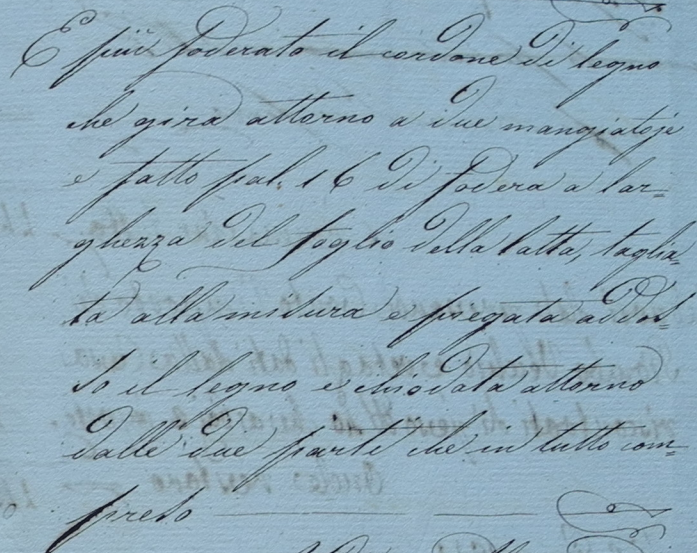 E più foderato il cordone di legno
che gira attorno a due mangiatoje
e fatto pal: 16 di fodera a lar=
ghezza del foglio della latta, taglia=
ta alla misura e piegata addos=
so il legno e chiodata attorno
dalle due parti che in tutto com=
preso